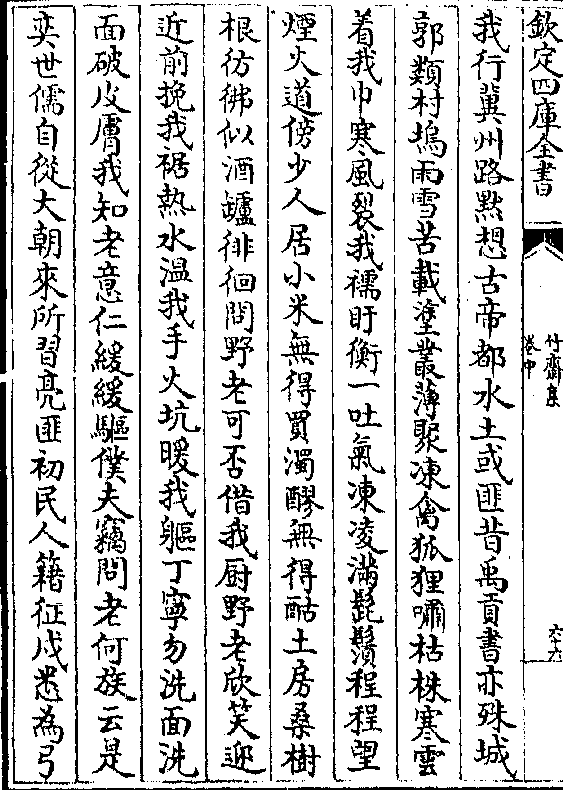 欽定四庫全書
竹齋集
卷中
六十六
我行冀州路默想古帝都水土或匪昔禹貢書亦殊城
郭類村塢雨雪苦載塗叢薄聚凍禽狐狸嘯枯株寒雲
着我巾寒風裂我襦盱衡一吐氣凍凌滿髭鬚程程望
煙火道傍少人居小米無得買濁醪無得酤土房桑樹
根彷彿似酒壚徘徊問野老可否借我厨野老欣笑迎
近前挽我裾熱水温我手火炕暖我軀丁寧勿洗面洗
面破皮膚我知老意仁緩緩驅僕夫竊問老何族云是
奕世儒自從大朝來所習亮匪初民人籍征戍悉為弓